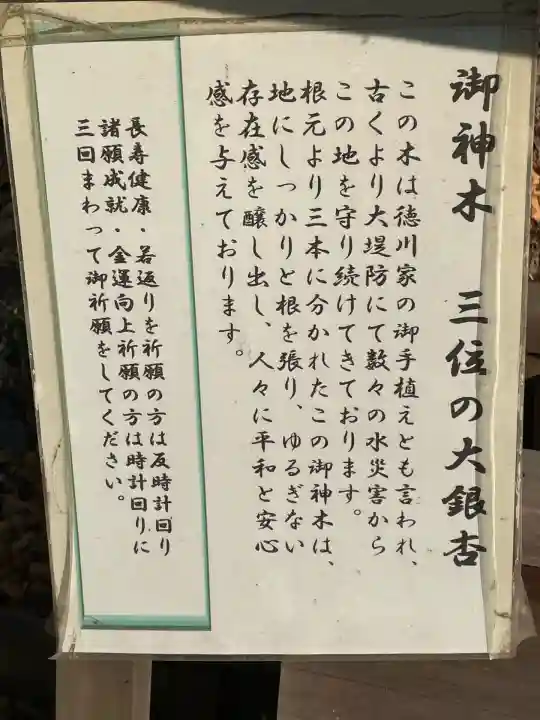 御神木　三位の大銀杏
この木は徳川家の御手植えとも言われ、
古くより大堤防にて数々の水災害から
この地を守り続けてきております。
根元より三本に分かれたこの御神木は、
地にしっかりと根を張り、ゆるぎない
存在感を醸し出し、人々に平和と安心
感を与えております。
長寿健康・若返りを祈願の方は反時計回り
諸願成就・金運向上祈願の方は時計回りに
三回まわって御祈願をしてください。